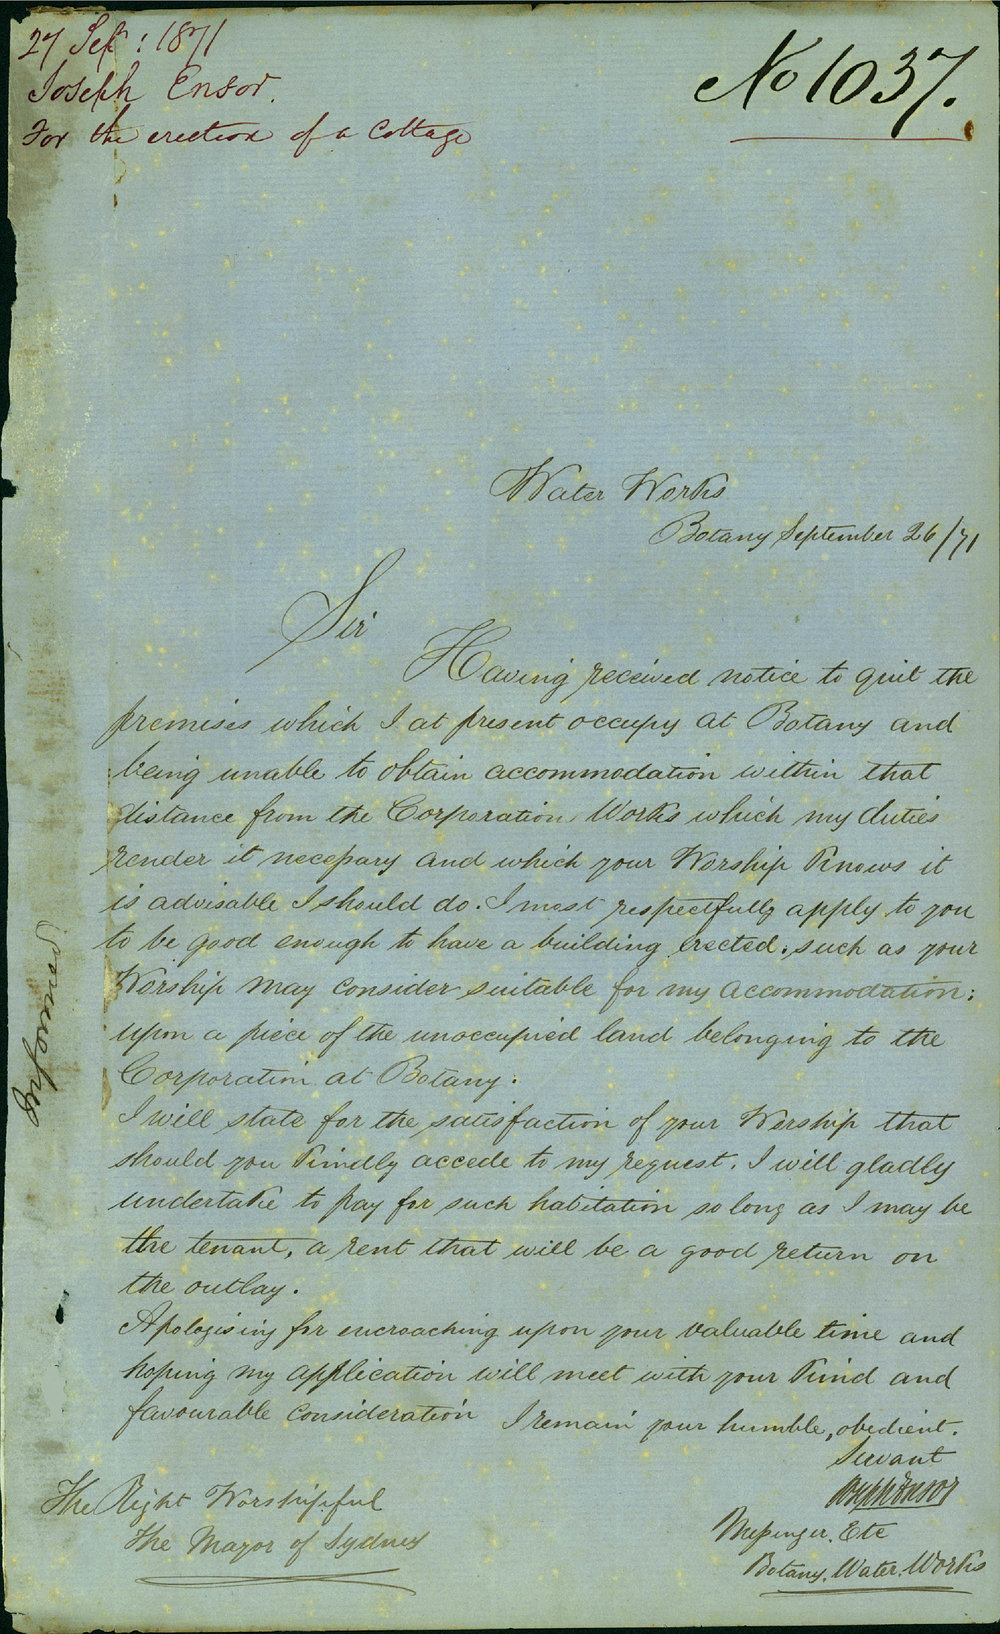 27 Sep : 1871
Joseph Ensor.
For the erection of a Cottage
No 1037.
Water Works
Botany September 26/71
Sir
Having received notice to quit the
premises which I at present occupy at Botany and
being unable to obtain accommodation within that
distance from the Corporation Works which my duties
render it necessary and which your Worship knows it
is advisable I should do. I most respectfully apply to you
to be good enough to have a building erected. such as your
Worship may consider suitable for my accommodation:
upon a piece of the unoccupied land belonging to the
Corporation at Botany.
I will state for the satisfaction of your Worship that
should you kindly accede to my request. I will gladly
undertake to pay for such habitation so long as I may be
the tenant, a rent that will be a good return on
the outlay.
Apologising for encroaching upon your valuable time and
hoping my application will meet with your kind and
favourable consideration I remain your humble, obedient.
Servant
Joseph Ensor
Messenger. Etc
Botany. Water. Works
The Right Worshipful
The Mayor of Sydney